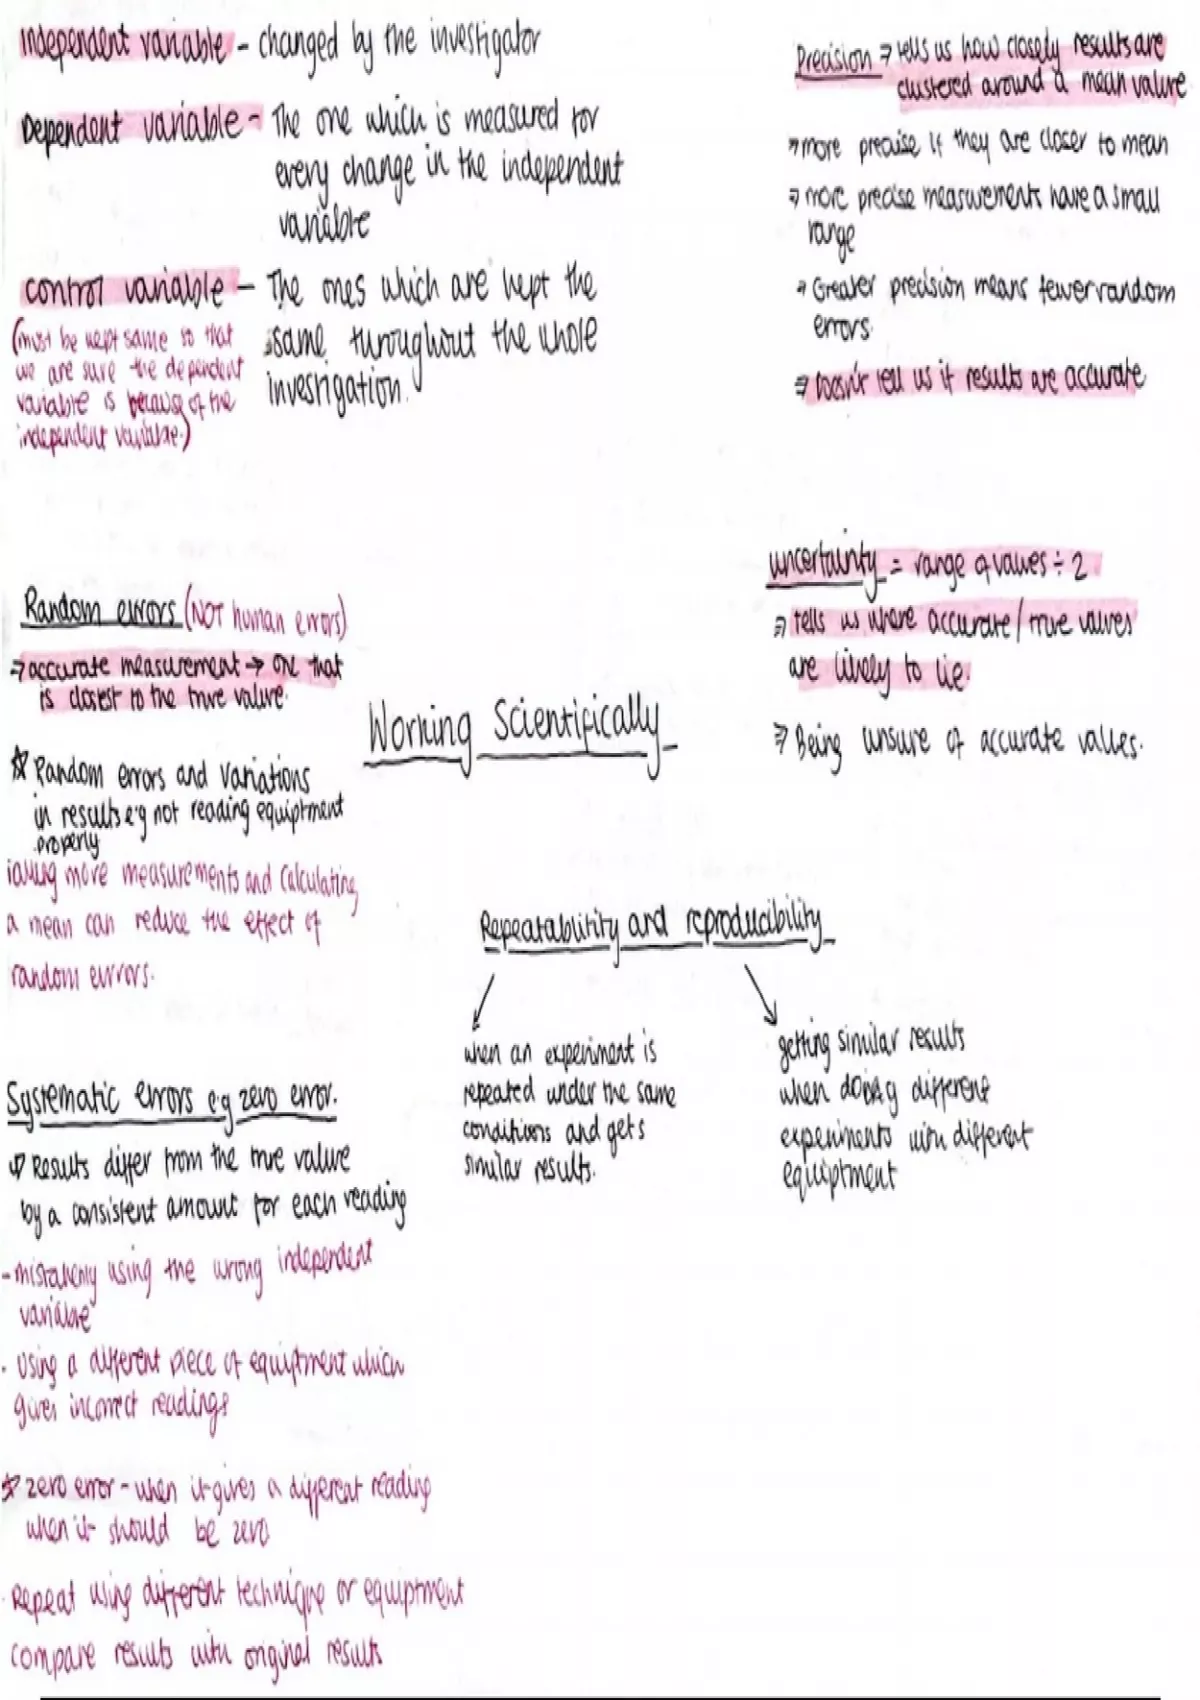 Independent variable - changed by the investigator
Dependent variable - The one which is measured for
every change in the independent
variable
control variable - The ones which are kept the
same throughout the whole
investigation.
(must be kept same so that
we are sure the dependent
variable is because of the
independent variable.)
Precision ⇒ tells us how closely results are
clustered around a mean value
⇒ more precise if they are closer to mean
⇒ more precise measurements have a small
range
⇒ Greater precision means fewer random
errors.
⇒ Doesn't tell us if results are accurate
uncertainty = range of values ÷ 2
⇒ tells us where accurate / true values
are likely to lie.
⇒ Being unsure of accurate values.
Random errors (NOT human errors)
⇒ accurate measurement → one that
is closest to the true value.
☆ Random errors and variations
in results e.g not reading equiptment
properly
Taking more measurements and calculating
a mean can reduce the effect of
random errors.
Working Scientifically
Repeatability and reproducibility
when an experiment is
repeated under the same
conditions and gets
similar results.
getting similar results
when doing different
experiments with different
equiptment
Systematic errors e.g zero error.
⇒ Results differ from the true value
by a consistent amount for each reading
- mistakenly using the wrong independent
variable
- Using a different piece of equiptment which
gives incorrect readings
☆ zero error - when it gives a different reading
when it should be zero
Repeat using different technique or equiptment
compare results with original results